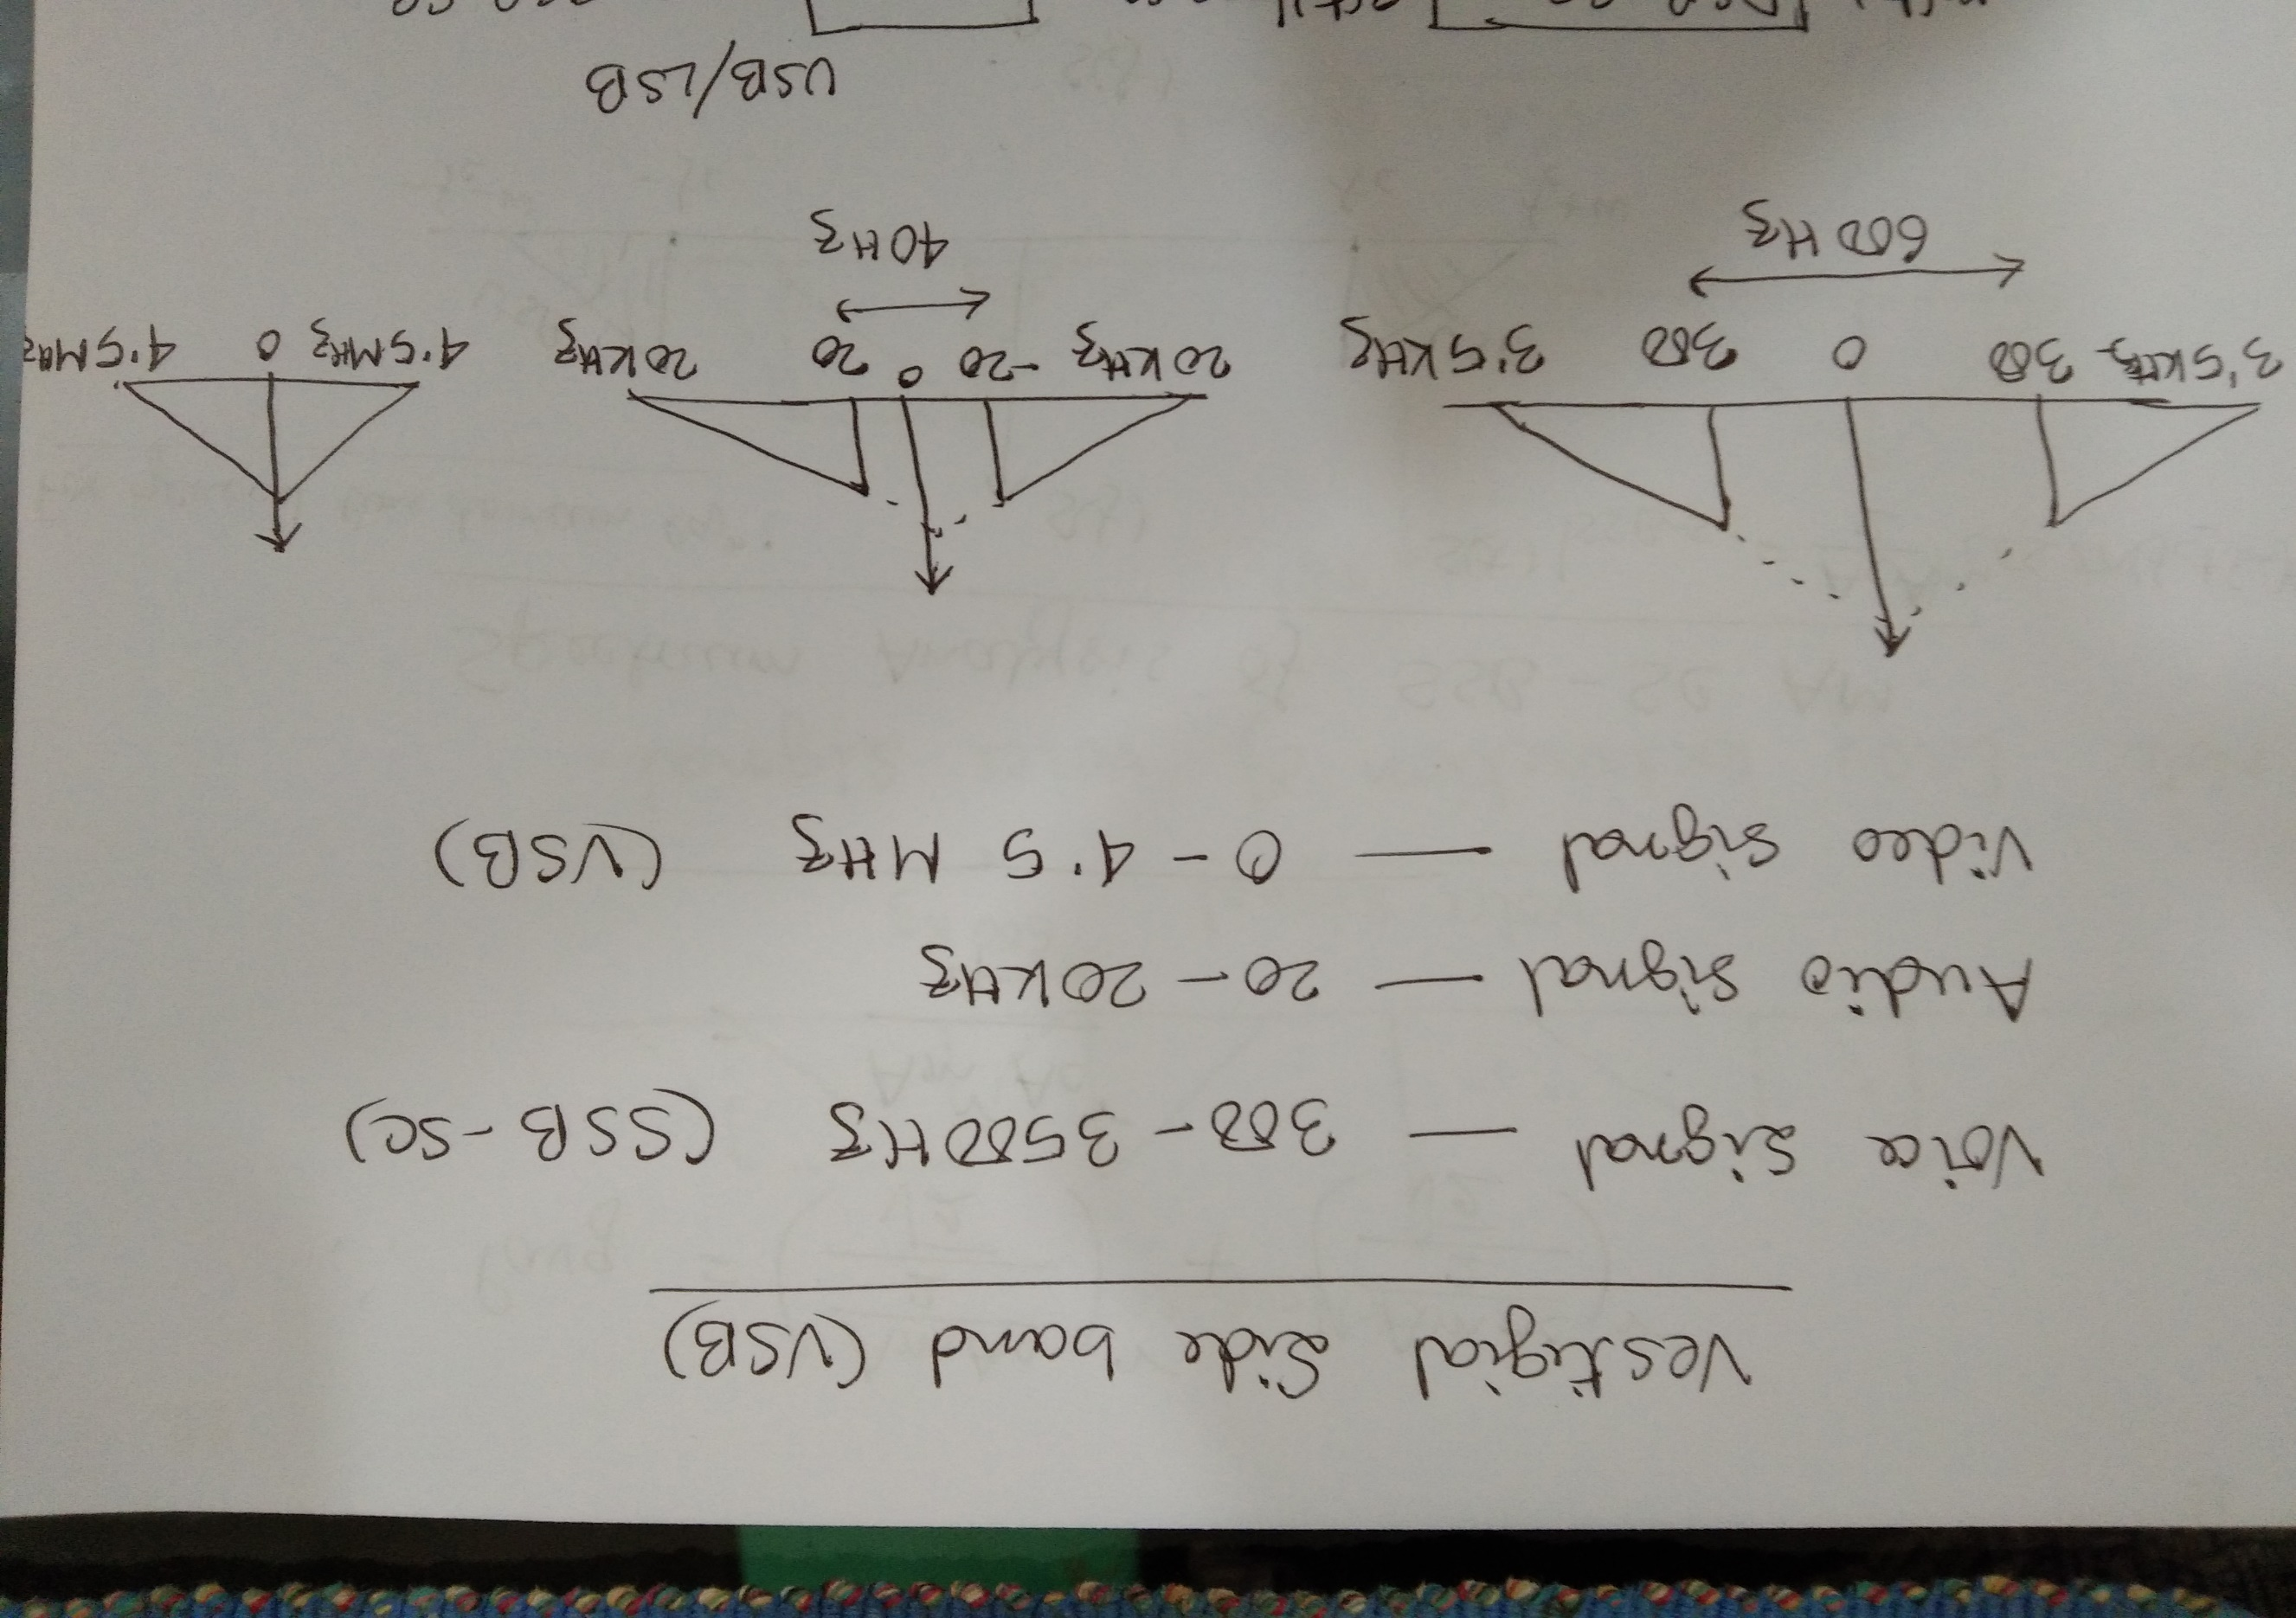 Vestigial Side band (VSB)
Voice signal — 300 - 3500Hz (SSB-SC)
Audio signal — 20 - 20KHz
Video signal — 0 - 4.5 MHz (VSB)
3.5KHz- 300 0 300 3.5KHz
600Hz
20KHz -20 0 20 20KHz
40Hz
4.5MHz 0 4.5MHz
USB/LSB